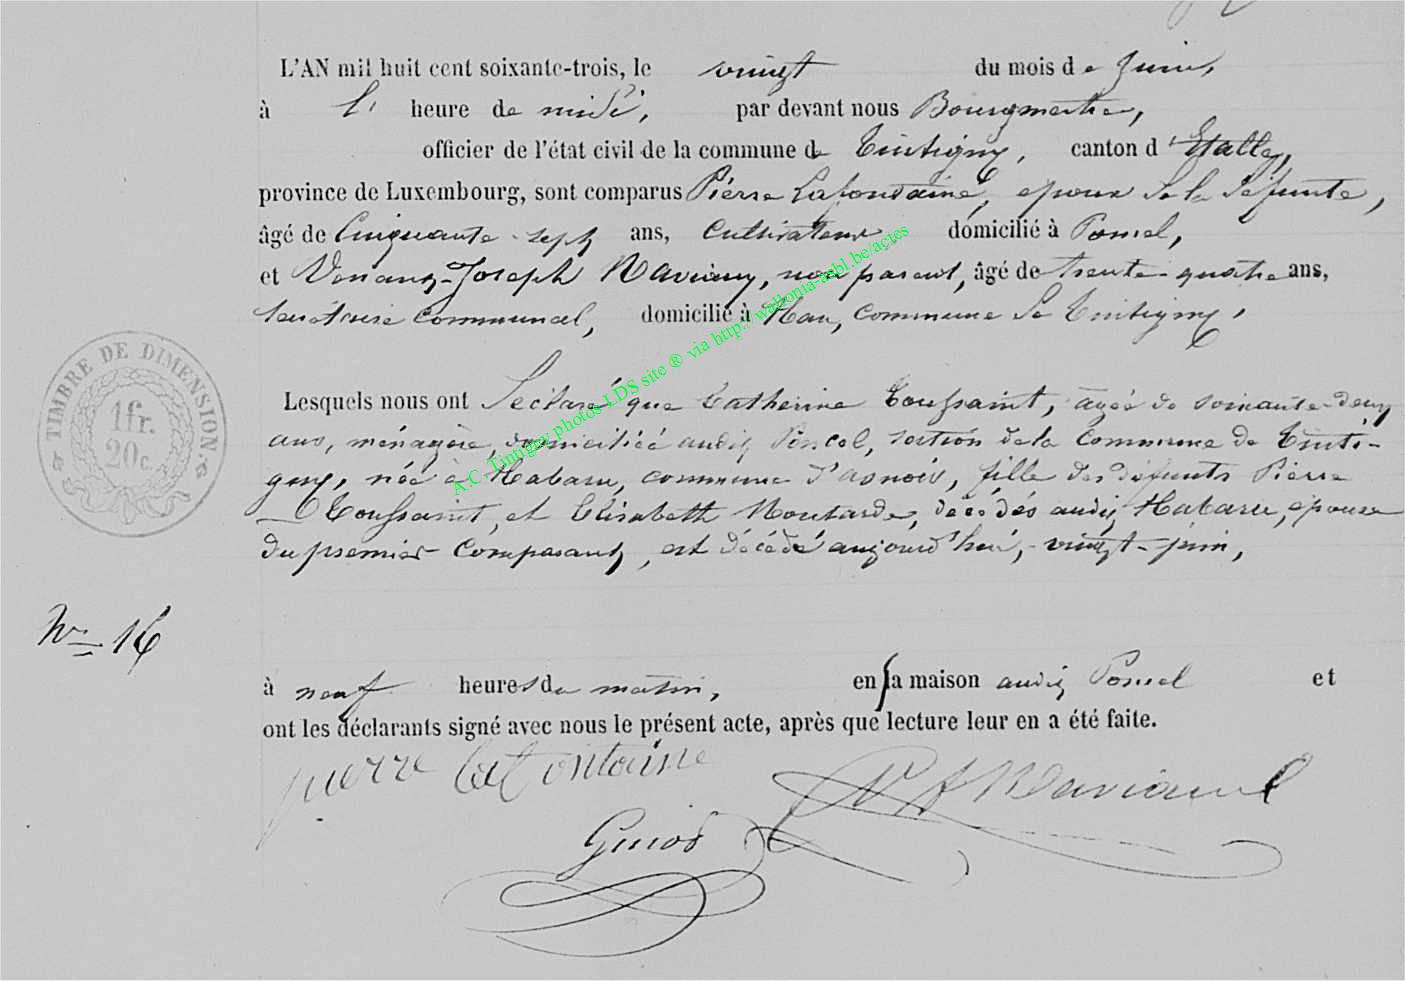 L'AN mil huit cent soixante-trois, le vingt du mois de juin,
à l' heure de midi, par devant nous Bourgmestre,
officier de l'état civil de la commune de Tintigny, canton d'Etalle,
province de Luxembourg, sont comparus Pierre Lafontaine, epoux de la défunte,
âgé de Cinquante-sept ans, Cultivateur, domicilié à Poncel,
et Venant-Joseph, non parent, âgé de trente-quatre ans,
secrétaire communal, domicilié à Han, commune de Tintigny,
TIMBRE DE DIMENSION.
1fr.
20c.
Lesquels nous ont déclaré que Catherine Toussaint, âgée de soixante-deux
ans, ménagère, domiciliée audit Poncel, section de la commune de Tinti-
gny, née à Habaru, commune d'assnois, fille des défunts Pierre
Toussaint, et Elisabeth Moutarde, décédés audit Habaru, epouse
du premier Comparant, est décédé aujourd'hui, vingt-juin,
No 16
à neuf heures du matin, en sa maison audit Poncel et
ont les déclarants signé avec nous le présent acte, après que lecture leur en a été faite.
pierre lafontaine
V J
Guiot
A.C. Tintigny photos LDS site ® via http://wallonia-asbl.be/actes